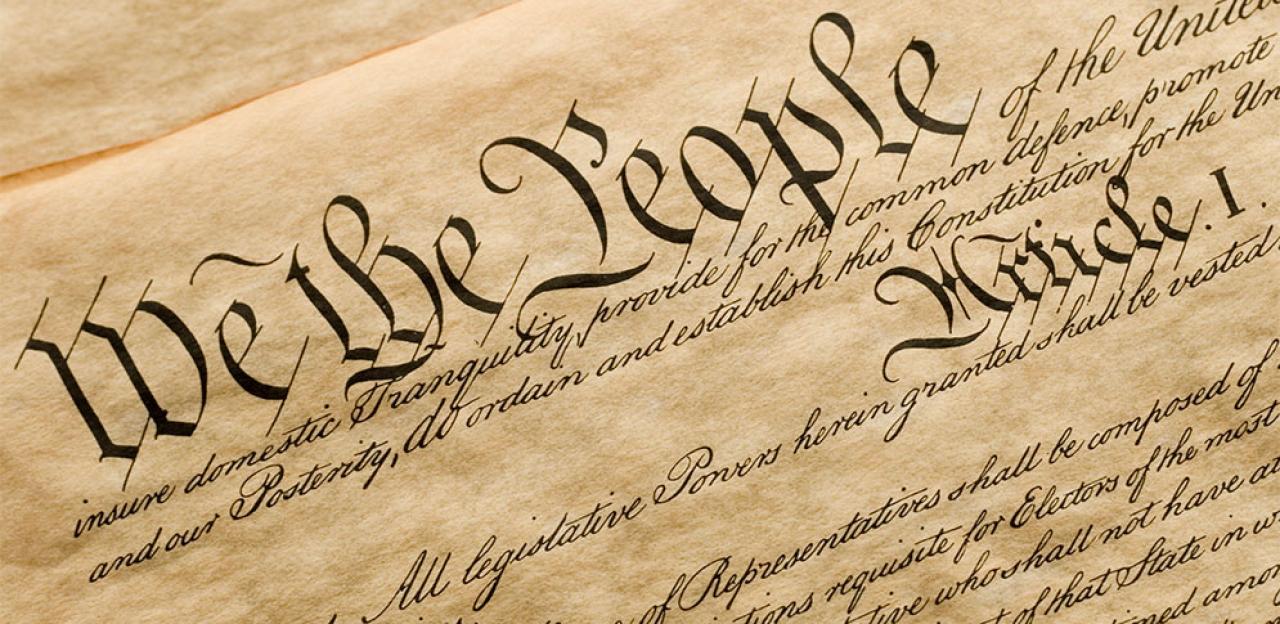 We the People of the United
insure domestic Tranquility, provide for the common defence, promote
and our Posterity, do ordain and establish this Constitution for the Un
Article. I.
All legislative Powers herein granted shall be vested
of Representatives shall be composed of
tions requisite for Electors of the most
tive who shall not have at
t of that State in w
ned amon